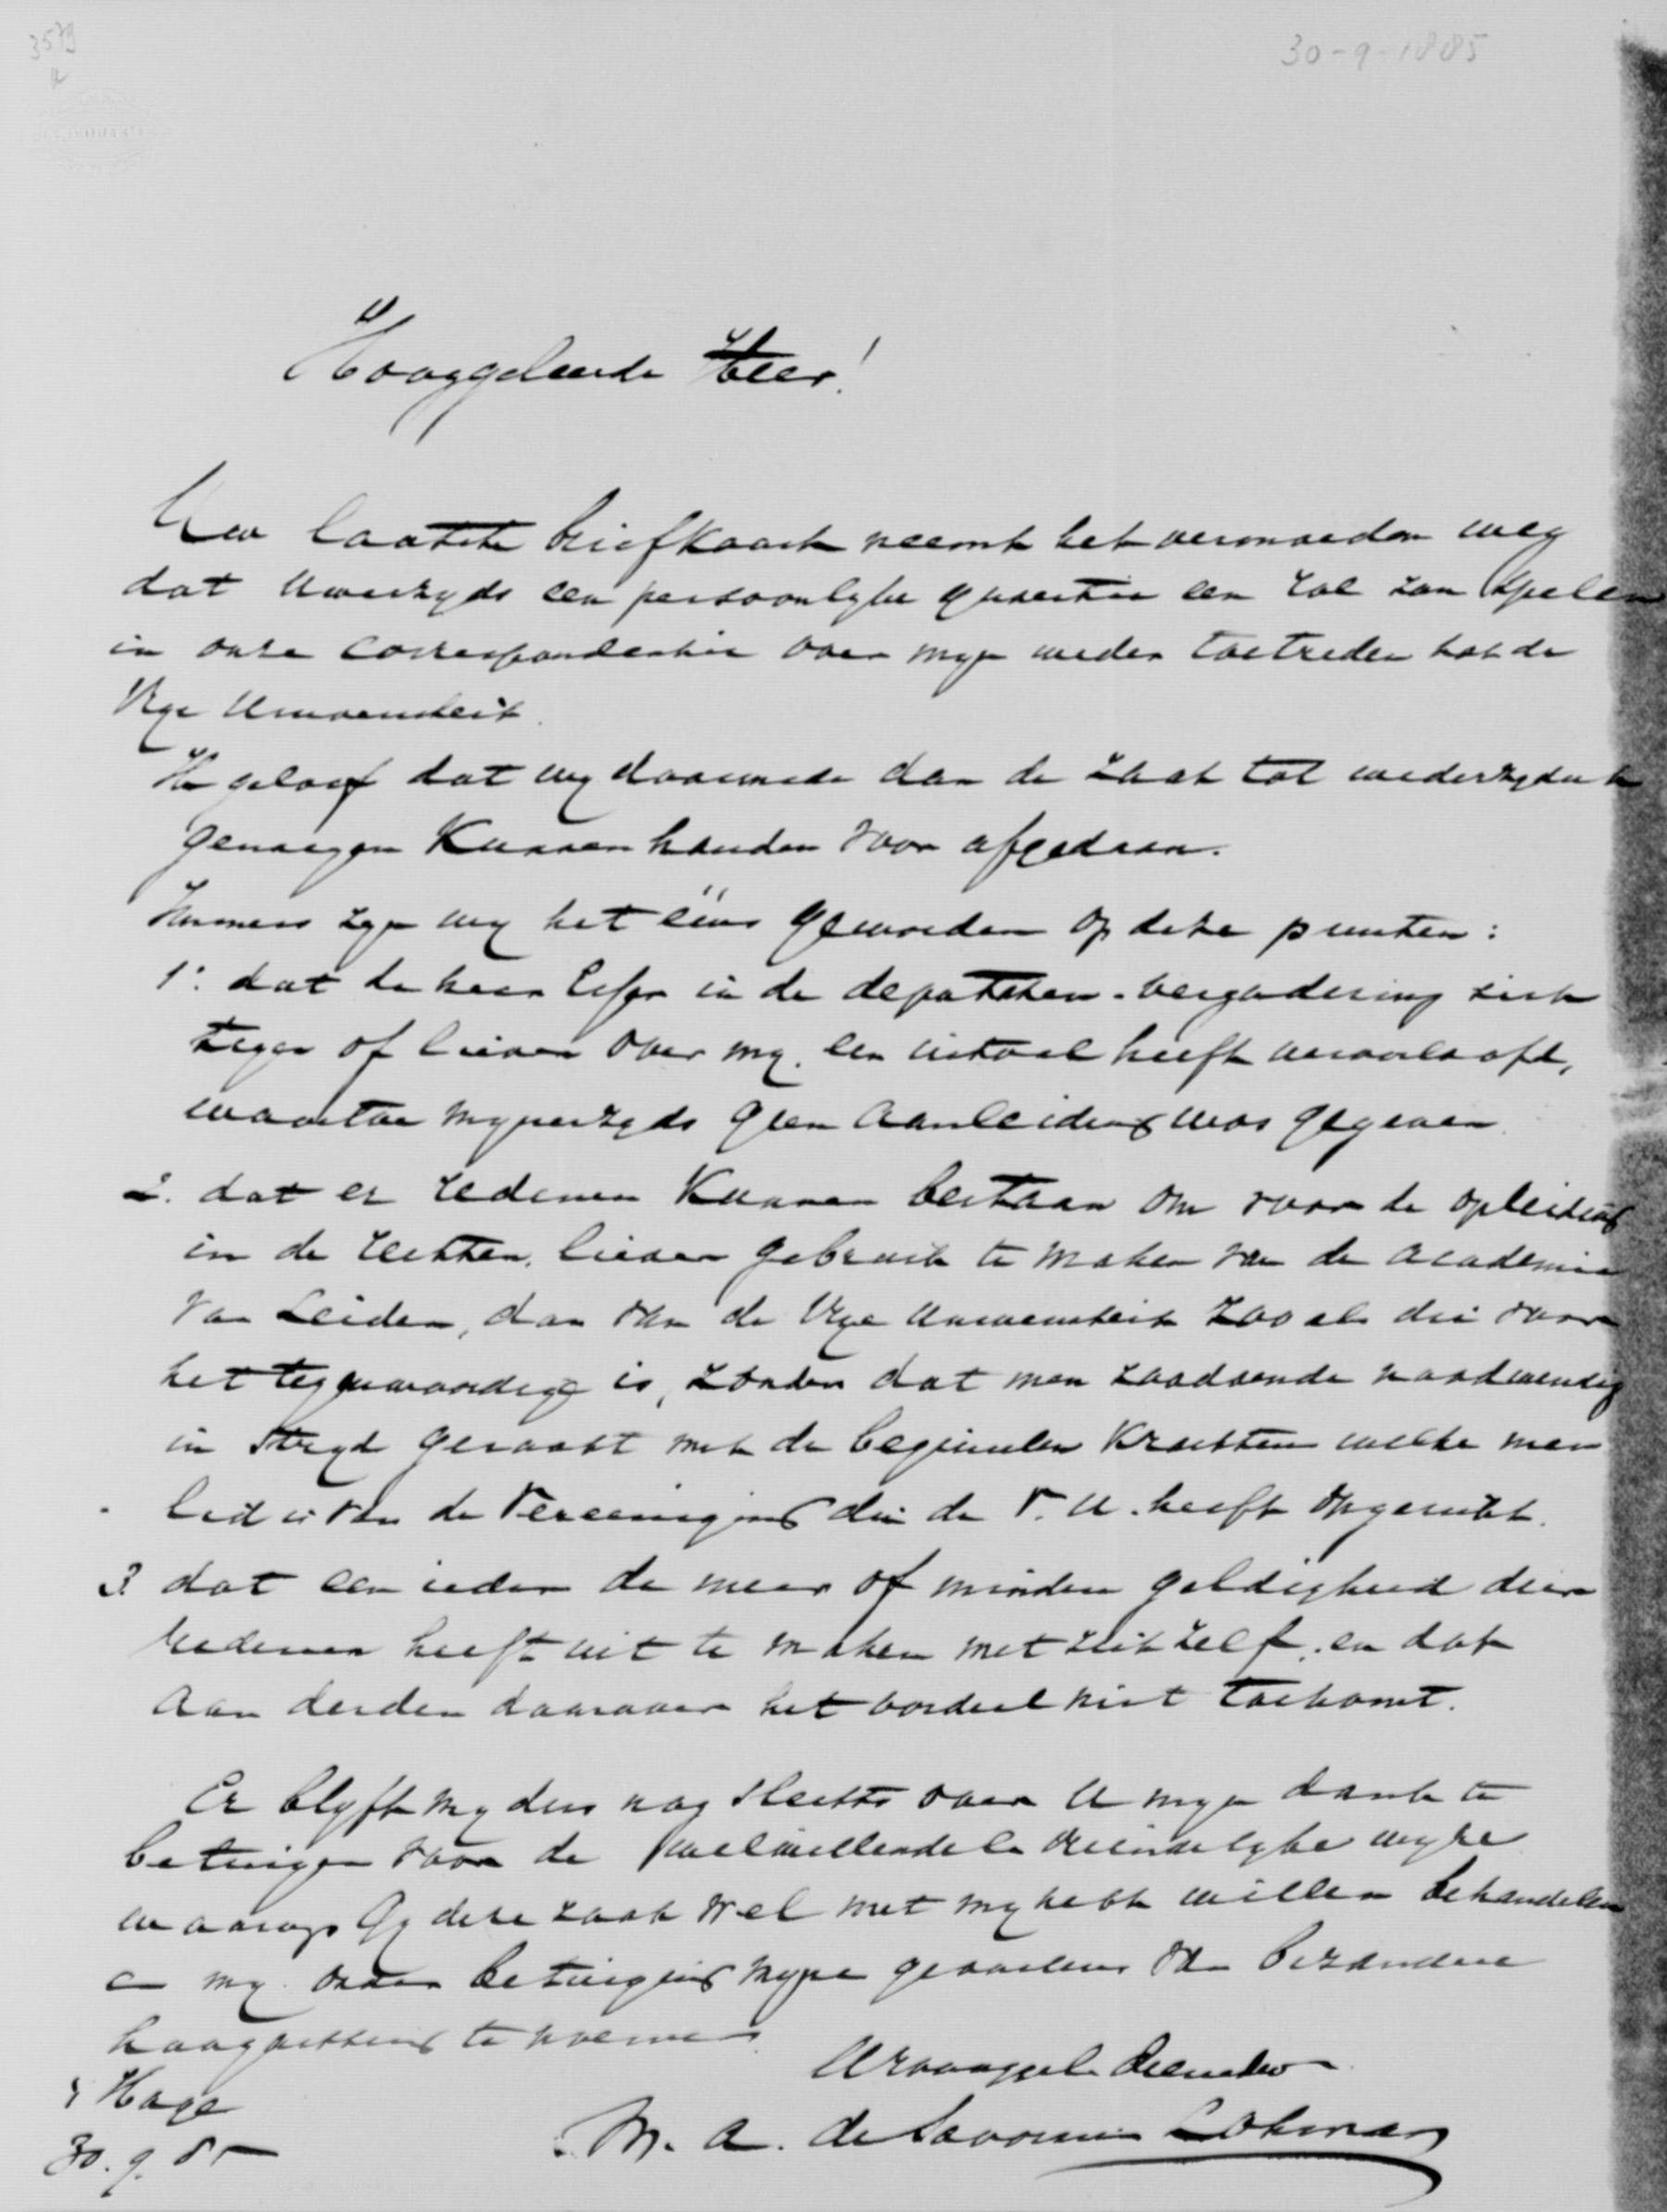 3579
30-9-1885
Hooggeleerde Heer!
Uw laatste briefkaart neemt het vermoeden weg
dat Uwerzyds een persoonlyke quaestie een rol zou spelen
in onze correspondentie over myn weder toetreden tot de
Vrye Universiteit.
Ik geloof dat wy daarmede dan de zaak tot wederzydsch
genoegen kunnen houden voor afgedaan.
Immers zyn wy het ééns geworden op deze punten:
1°. dat de heer in de deputaten-vergadering zich
tegen of liever over my, een uitval heeft veroorloofd,
waartoe mynerzyds geen aanleiding was gegeven.
2. dat er redenen kunnen bestaan om voor de opleiding
in de rechten, liever gebruik te maken van de academie
van Leiden, dan van de Vrye Universiteit zooals die voor
het tegenwoordige is, zonder dat men zoodoende noodwendig
in stryd geraakt met de beginselen krachtens welke men
lid is van de Vereeniging die de V.U. heeft opgericht.
3 dat een ieder de meer of mindere geldigheid dier
redenen heeft uit te maken met zich zelf, en dat
aan derden daarover het oordeel niet toekomt.
Er blyft my dus nog slechts over U myn dank te
betuigen voor de welwillende en vriendelyke wyze
waarop Gy deze zaak wel met my hebt willen behandelen
en my onder betuiging myner gevoelens van bizondere
hoogachting te noemen
UHooggel. dienaar
's Hage
30.9.85
M. A. de Savornin Lohman